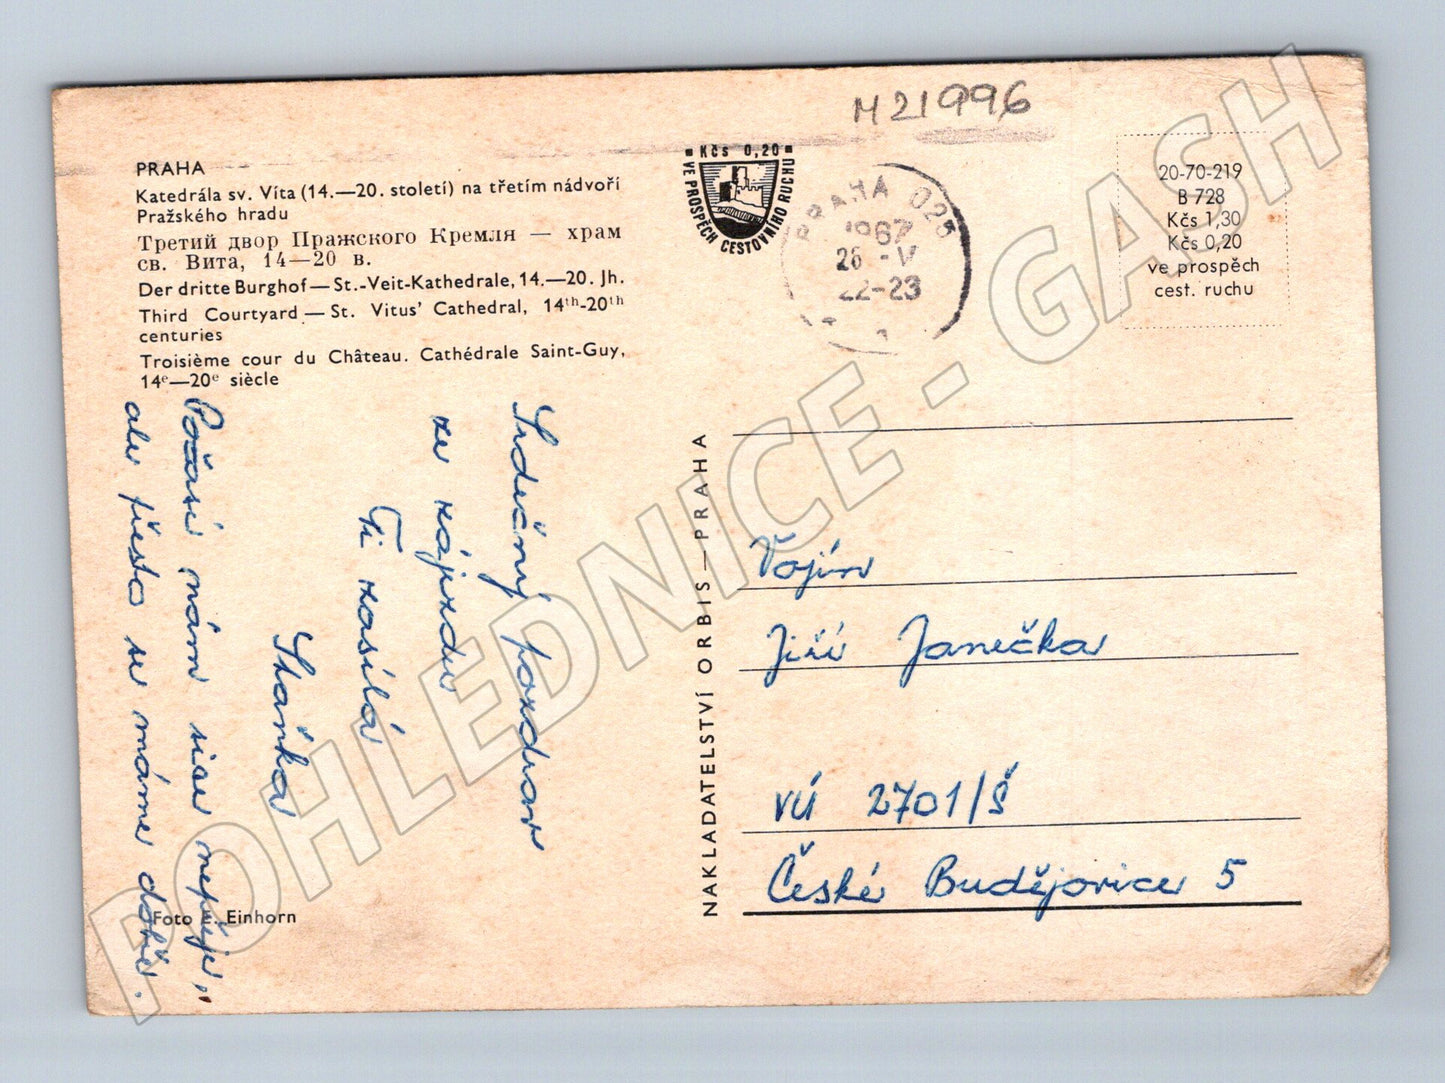 M21996
PRAHA
Katedrála sv. Víta (14.—20. století) na třetím nádvoří
Pražského hradu
Третий двор Пражского Кремля — храм
св. Вита, 14—20 в.
Der dritte Burghof — St.-Veit-Kathedrale, 14.—20. Jh.
Third Courtyard — St. Vitus' Cathedral, 14th-20th
centuries
Troisième cour du Château. Cathédrale Saint-Guy,
14e—20e siècle
Kčs 0,20
VE PROSPĚCH CESTOVNÍHO RUCHU
PRAHA 025
1967
26 -V
22-23
20-70-219
B 728
Kčs 1,30
Kčs 0,20
ve prospěch
cest. ruchu
Srdečný pozdrav
ze zájezdu
Ti zasílá
Stáňka
Počasí nám sice nepřeje,
ale přesto se máme dobře.
Foto E. Einhorn
NAKLADATELSTVÍ ORBIS — PRAHA
Vojín
Jiří Janečka
VÚ 2701/Š
České Budějovice 5
POHLEDNICE - GASH